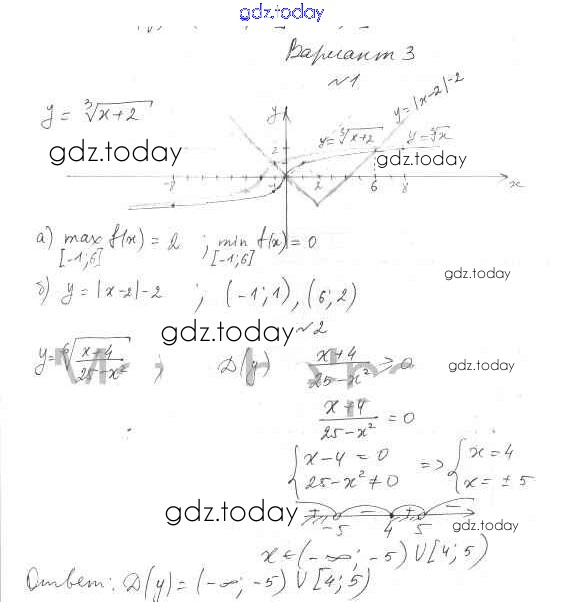 gdz.today
Вариант 3
№1
y = ∛(x+2)
y
y = |x-2|-2
y = ∛(x+2)
y = ∜x
2
gdz.today
gdz.today
-8 -1 2 6 8 x
а) max f(x) = 2 ; min f(x) = 0
[-1;6] [-1;6]
gdz.today
б) y = |x-2|-2 ; (-1;1), (6;2)
gdz.today
№2
y = ⁶√((x+4)/(25-x²)) ; D(y) (x+4)/(25-x²) ≥ 0
gdz.today
(x+4)/(25-x²) = 0
{ x-4 = 0 => { x = 4
25-x² ≠ 0 x = ± 5
+ - + -
gdz.today
-5 4 5
gdz.today
x ∈ (-∞; -5) ∪ [4; 5)
Ответ: D(y) = (-∞; -5) ∪ [4; 5)